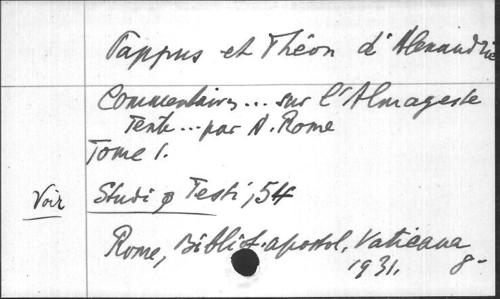 Pappus et Théon d'Alexandrie
Commentaires... sur l'Almageste
Texte... par A. Rome
Tome 1.
Voir Studi e Testi, 54
Rome, Bibliot. apostol. Vaticana
1931. 8-